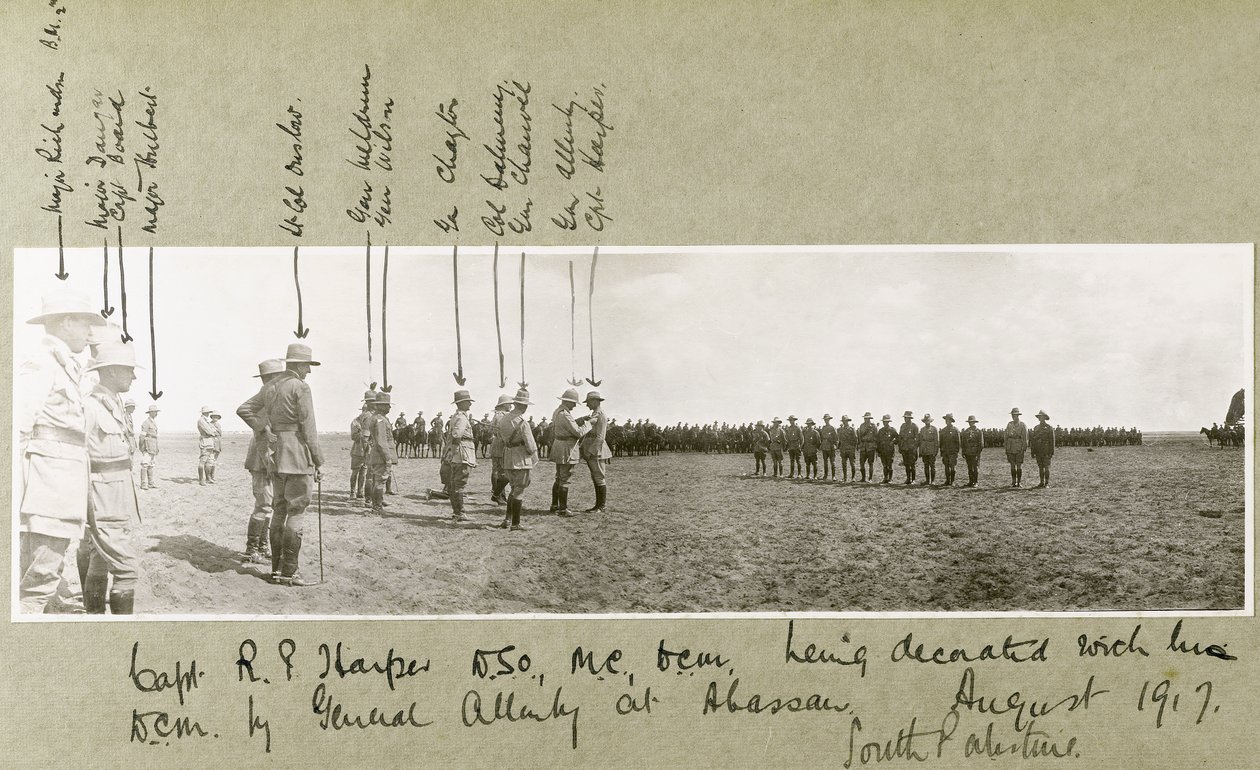 Major Richardson B.M. 2nd
Major Dangar
Capt Board
Major Hulbert
Lt Col Onslow.
Gen Meldrum
Gen Wilson
Gen Chaytor
Col Dalmeny
Gen Chauvel
Gen Allenby.
Cpt. Harper.
Capt. R. P. Harper D.S.O., M.C., D.C.M., being decorated with his
D.C.M. by General Allenby at Abassan. August 1917.
South Palestine.